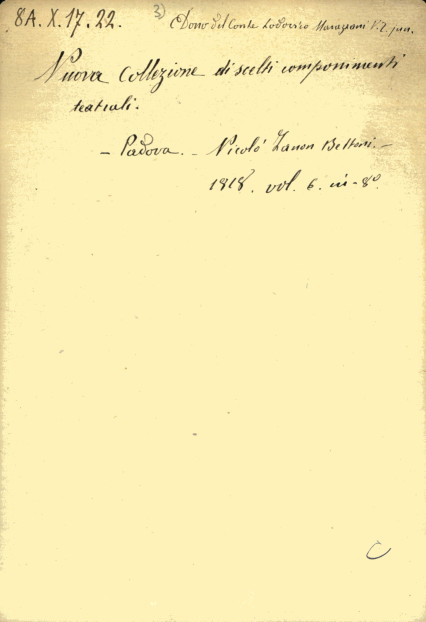 8A. X. 17. 22. 3) Dono del Conte Lodovico
Nuova Collezione di scelti componimenti
teatrali.
- Padova. - Nicolò Zanon Bettoni. -
1818. vol. 6. in-8º.
C